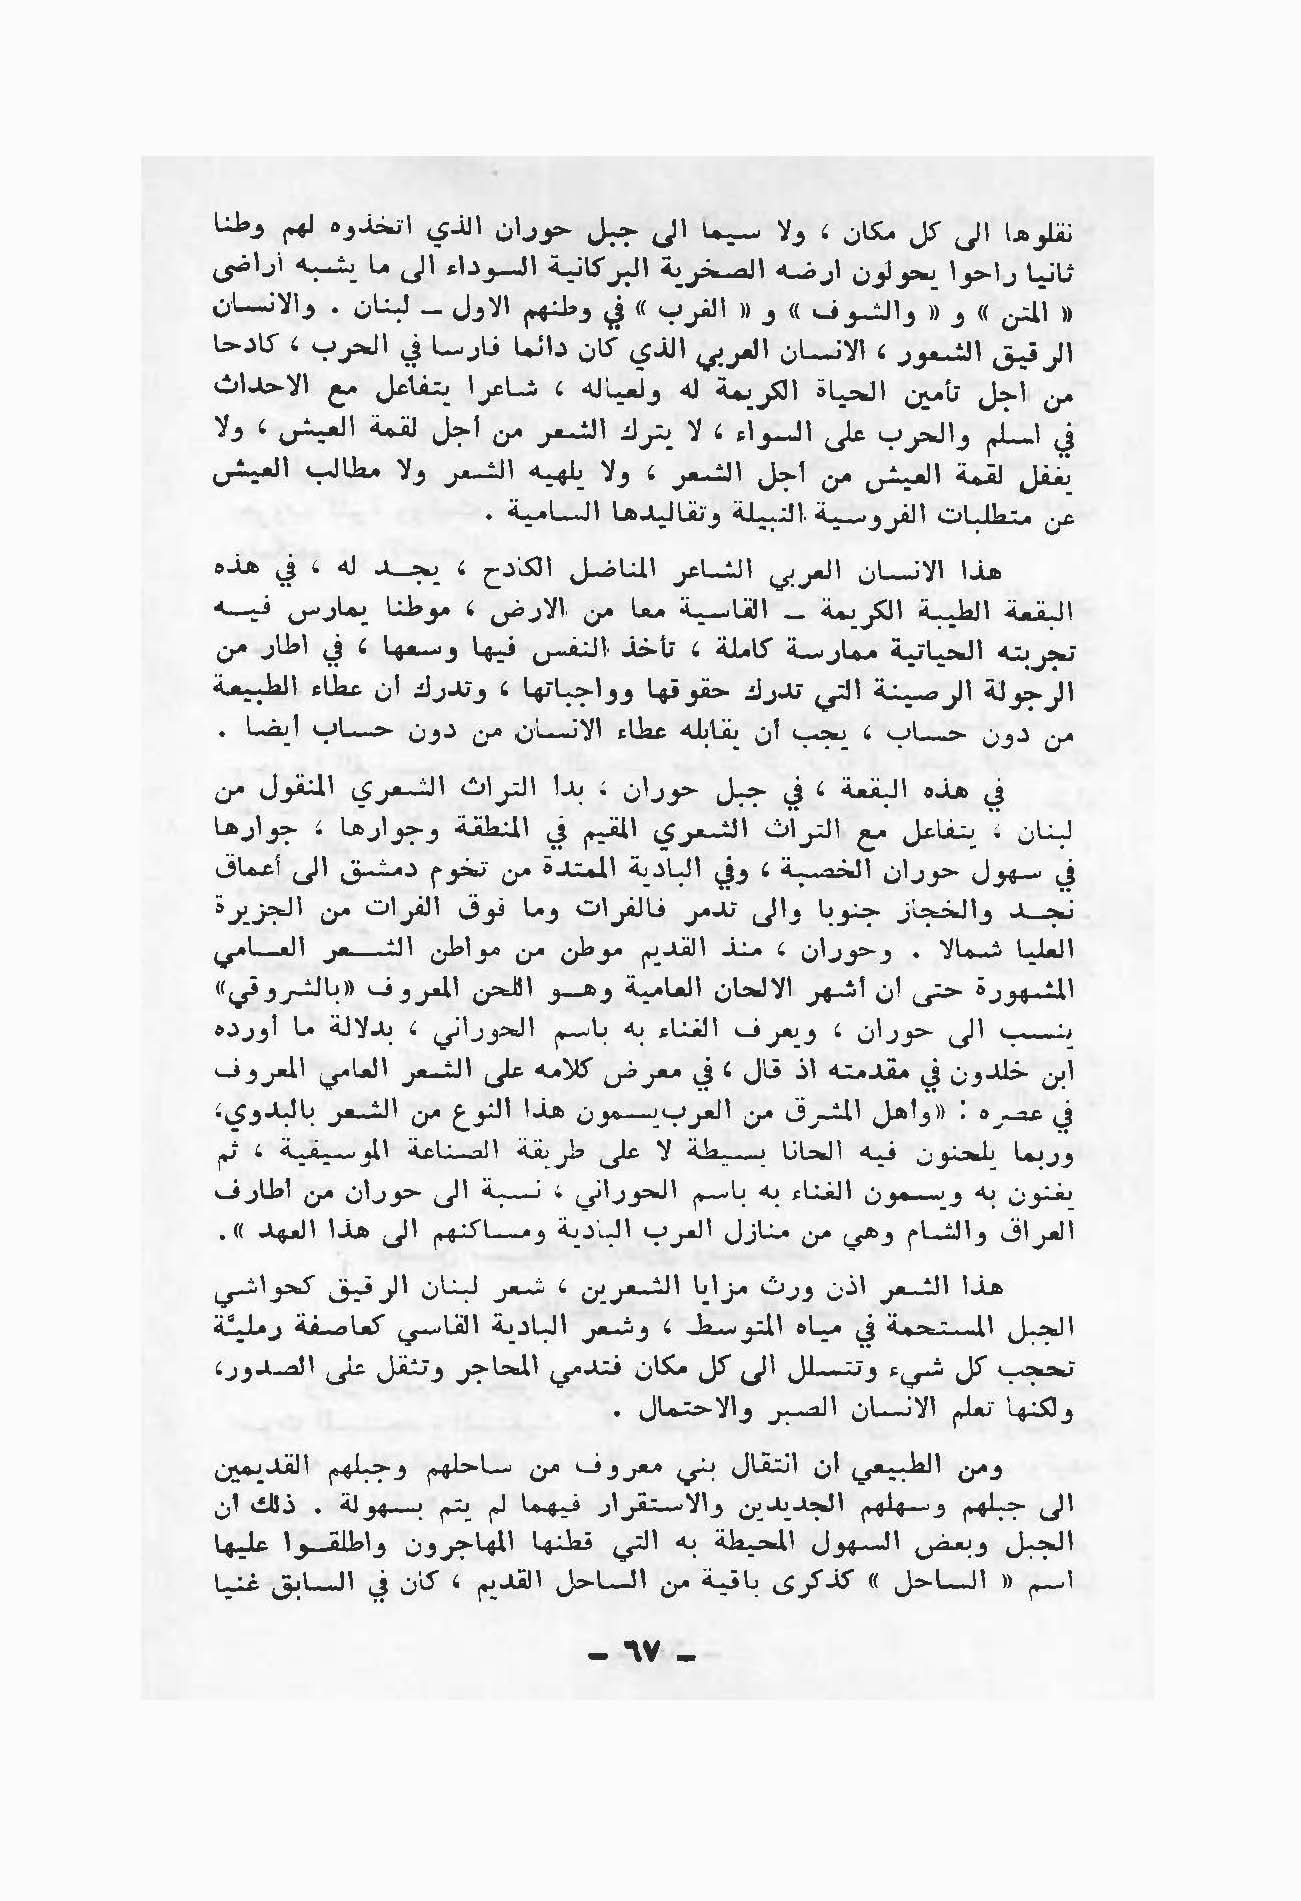 نقلوها الى كل مكان ، ولا سيما الى جبل حوران الذي اتخذوه لهم وطنا
ثانيا راحوا يحولون ارضه الصخرية البركانية السوداء الى ما يشبه أراضى
« المتن » و « والشوف » و « الغرب » في وطنهم الاول ــ لبنان . والانسان
الرقيق الشعور ، الانسان العربي الذي كان دائما فارسا في الحرب ، كادحا
من أجل تأمين الحياة الكريمة له ولعياله ، شاعرا يتفاعل مع الاحداث
في اسلم والحرب على السواء ، لا يترك الشعر من أجل لقمة العيش ، ولا
يغفل لقمة العيش من أجل الشعر ، ولا يلهيه الشعر ولا مطالب العيش
عن متطلبات الفروسية النبيلة وتقاليدها السامية .
هذا الانسان العربي الشاعر المناضل الكادح ، يجد له ، في هذه
البقعة الطيبة الكريمة ــ القاسية معا من الارض ، موطنا يمارس فيه
تجربته الحياتية ممارسة كاملة ، تأخذ النفس فيها وسعها ، في اطار من
الرجولة الرصينة التي تدرك حقوقها وواجباتها ، وتدرك أن عطاء الطبيعة
من دون حساب ، يجب أن يقابله عطاء الانسان من دون حساب أيضا .
في هذه البقعة ، في جبل حوران ، بدأ التراث الشعري المنقول من
لبنان ، يتفاعل مع التراث الشعري المقيم في المنطقة وجوارها ، جوارها
في سهول حوران الخصبة ، وفي البادية الممتدة من تخوم دمشق الى أعماق
نجد والحجاز جنوبا والى تدمر فالفرات وما فوق الفرات من الجزيرة
العليا شمالا . وحوران ، منذ القديم موطن من مواطن الشعر العامي
المشهورة حتى أن أشهر الالحان العامية وهو اللحن المعروف «بالشروقي»
ينسب الى حوران ، ويعرف الغناء به باسم الحوراني ، بدلالة ما أورده
ابن خلدون في مقدمته اذ قال ، في معرض كلامه على الشعر العامي المعروف
في عصره : «وأهل المشرق من العرب يسمون هذا النوع من الشعر بالبدوي،
وربما يلحنون فيه الحانا بسيطة لا على طريقة الصناعة الموسيقية ، ثم
يغنون به ويسمون الغناء به باسم الحوراني ، نسبة الى حوران من أطارف
العراق والشام وهي من منازل العرب البادية ومساكنهم الى هذا العهد ».
هذا الشعر اذن ورث مزايا الشعرين ، شعر لبنان الرقيق كحواشي
الجبل المستحمة في مياه المتوسط ، وشعر البادية القاسي كعاصفة رمليَّة
تحجب كل شيء وتتسلل الى كل مكان فتدمي المحاجر وتثقل على الصدور،
ولكنها تعلم الانسان الصبر والاحتمال .
ومن الطبيعي أن انتقال بني معروف من ساحلهم وجبلهم القديمين
الى جبلهم وسهلهم الجديدين والاستقرار فيهما لم يتم بسهولة . ذلك أن
الجبل وبعض السهول المحيطة به التي قطنها المهاجرون واطلقوا عليها
اسم « الساحل » كذكرى باقية من الساحل القديم ، كان في السابق غنيا
ــ ٦٧ ــ